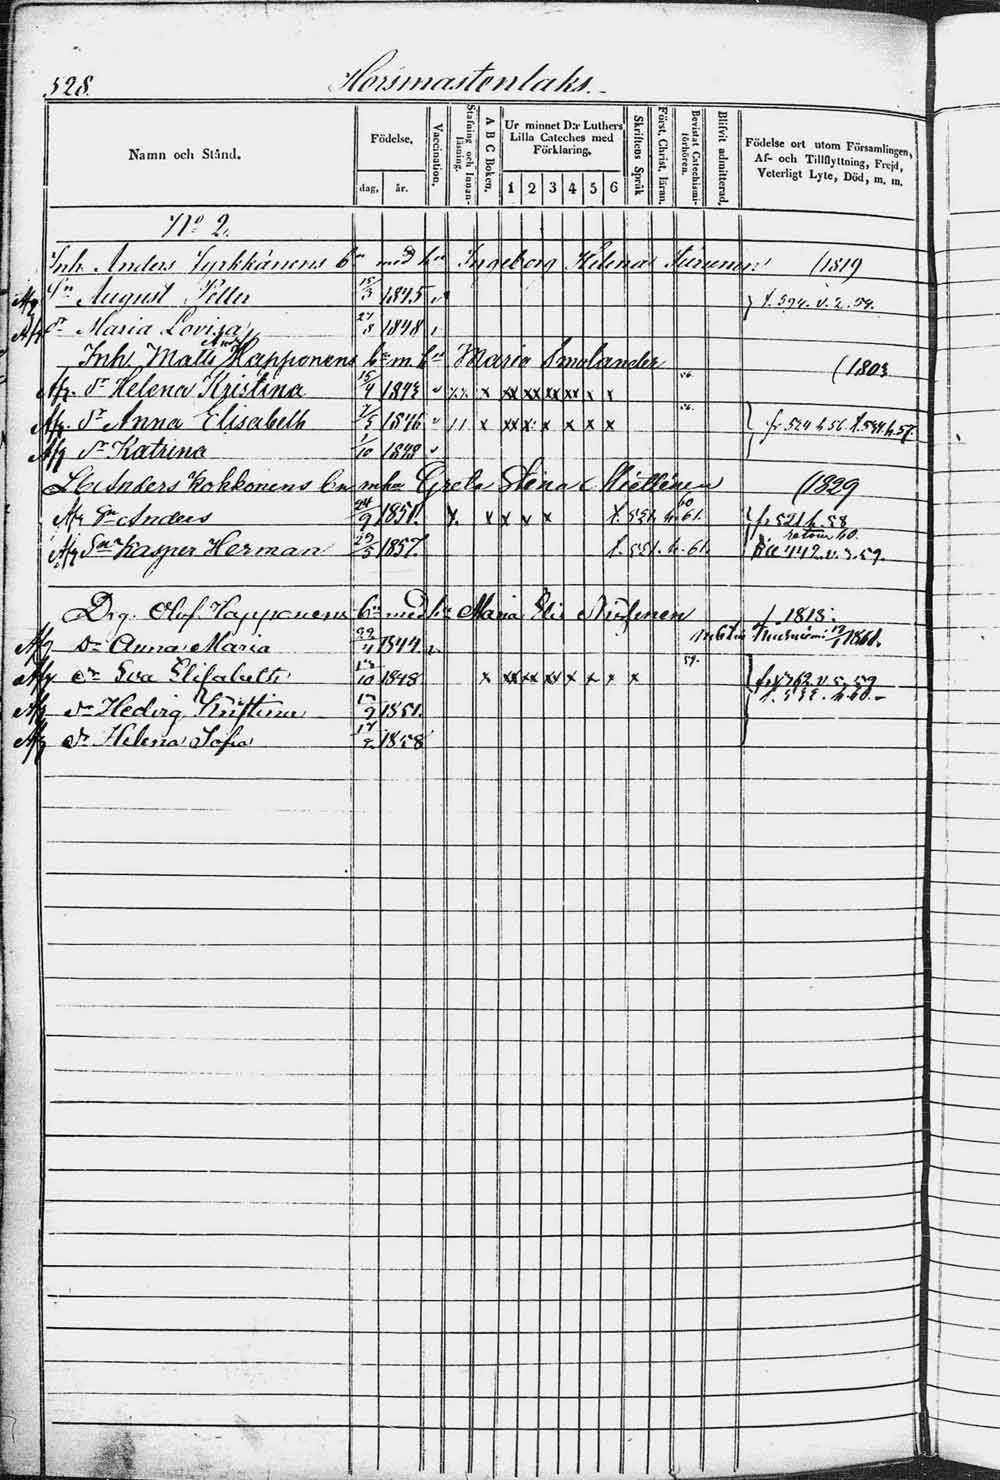 528.
Horsmastenlaks.
Namn och Stånd.
Födelse.
dag, år.
Vaccination.
Stafning och Innan-läsning.
A B C Boken.
Ur minnet D:r Luthers Lilla Cateches med Förklaring.
1 2 3 4 5 6
Skriftens Språk
Först. Christ. läran.
Bevistat Catechismi-förhören.
Blifvit admitterad.
Födelse ort utom Församlingen, Af- och Tillflyttning, Frejd, Veterligt Lyte, Död, m. m.
No 2.
Inh. Anders Jyrkkänens med Ingeborg Helena (1819
Sn August Petter 15/3 1845
Dr Maria Lovisa 1848
Inh. Matts Happonens m. Maria Smolander (1803
Afg. Dr Helena Kristina 15/4 1843 x xx xx xx xx x x 56.
Afg. Dr Anna Elisabeth 1846 x xx xx x x x x 56. fr 524 h. 56.
Afg Dr Katrina 1/10 1848
Anders Kokkonens Greta Stina Miettinen (1829
Afg Sn Anders 24/9 1851. x x x x t. 551. h. 61. 60 fr 521 h. 58
retour 60.
Afg Sn Kasper Herman 29/5 1857. t. 551. h. 61. 442. v. 3. 59.
Drg. Olof Happonens med Maria Elis 1818.
Afg Dr Anna Maria 22/4 1844 1861.
Afg Dr Eva Elisabeth 10 1848 x xx xx xx x x x x 59. 59
Afg Dr Hedvig Kristina 1851. h 60.
Afg Dr Helena Sofia 1858